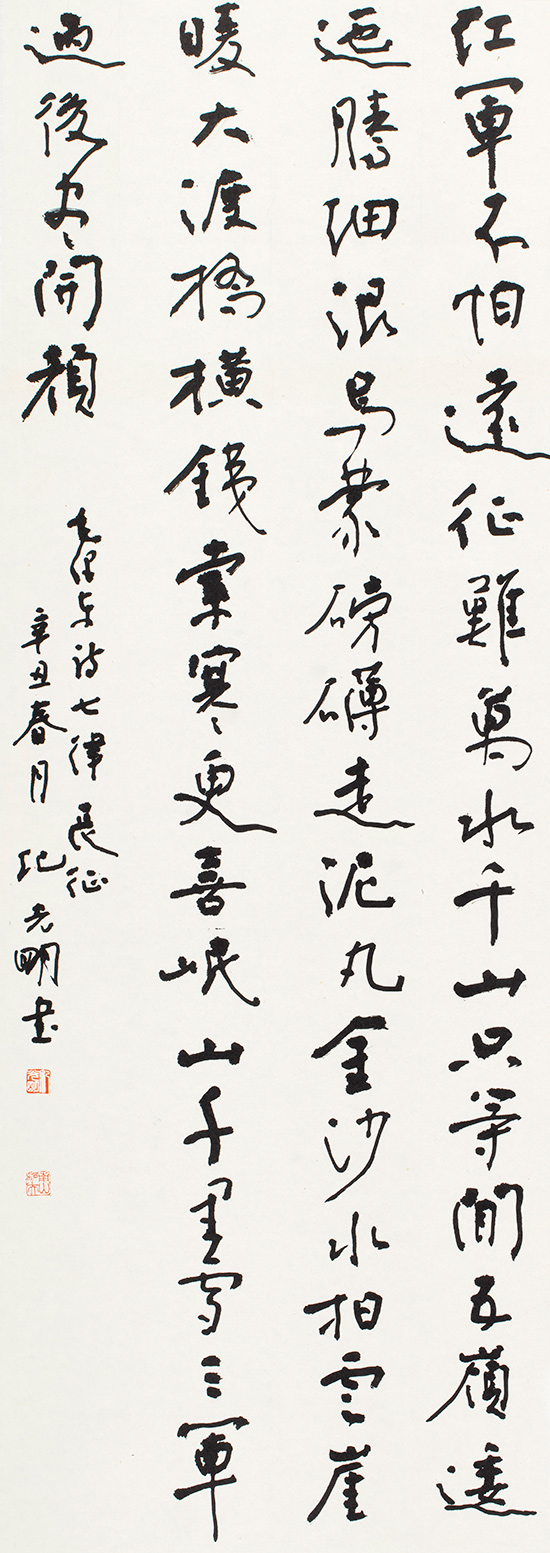 红軍不怕遠征難萬水千山只等閒五嶺逶
迤騰细浪烏蒙磅礴走泥丸金沙水拍雲崖
暖大渡橋横鐵索寒更喜岷山千里雪三軍
過後尽開顔
毛泽东诗七律長征
辛丑春月纪光明書